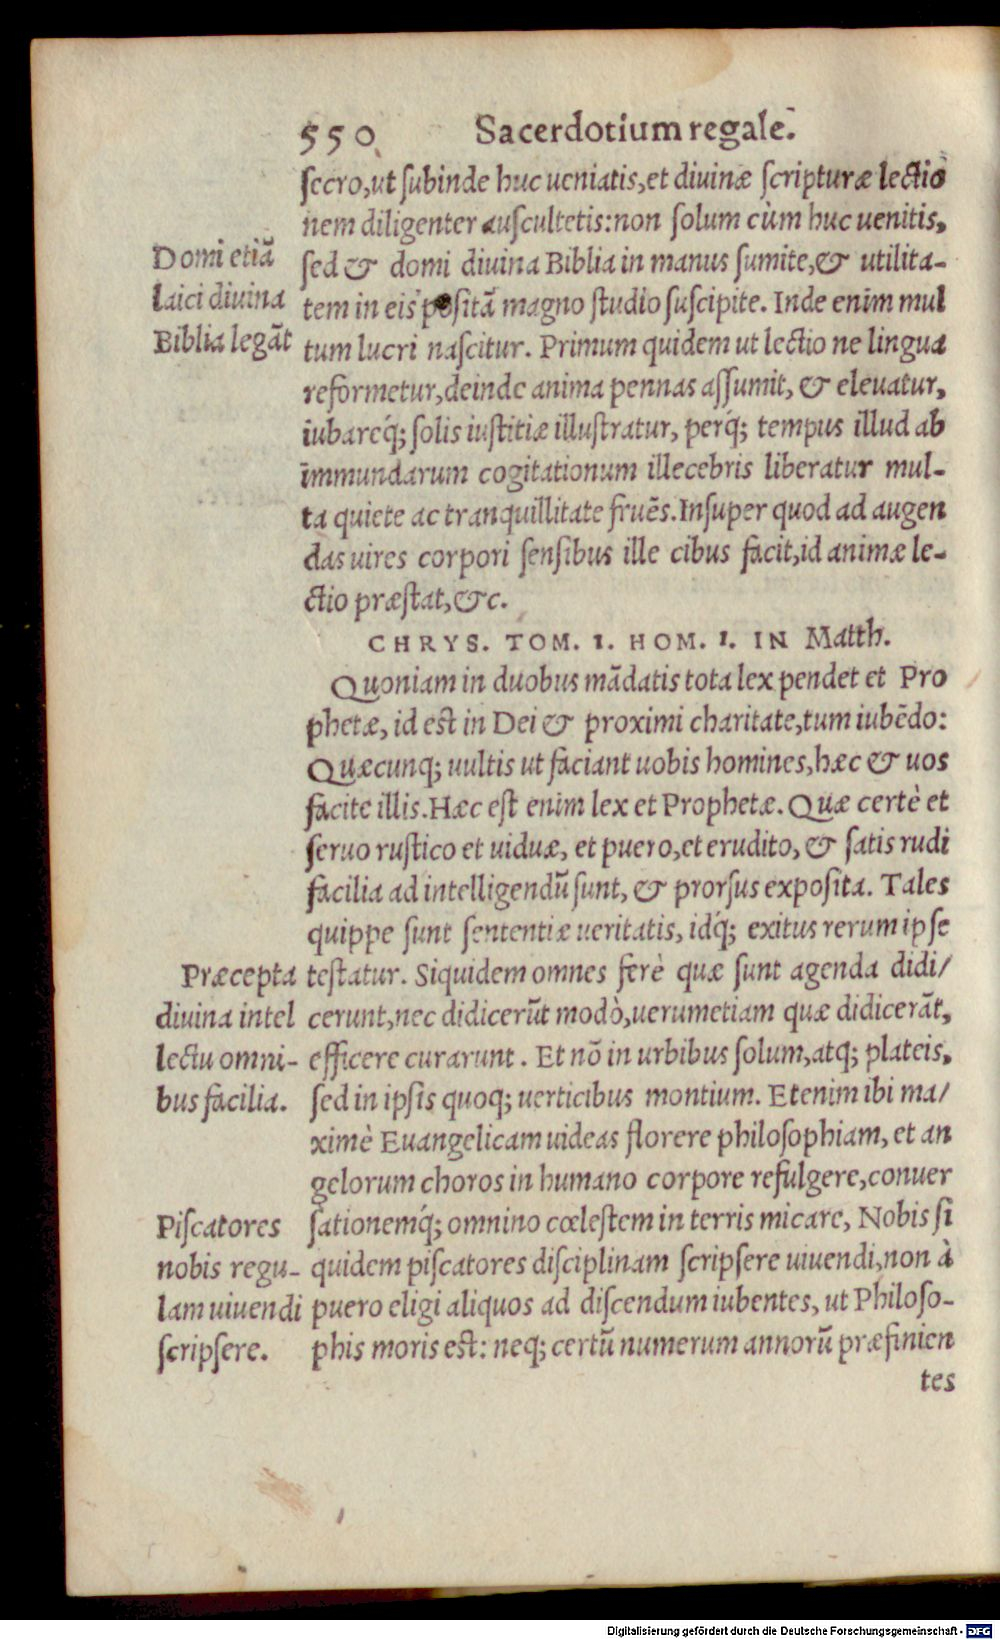 550 Sacerdotium regale.
secro, ut subinde huc ueniatis, et diuinæ scripturæ lectio
nem diligenter auscultetis: non solum cùm huc uenitis,
Domi etiā
laici diuina
Biblia legāt
sed & domi diuina Biblia in manus sumite, & utilita-
tem in eis positā magno studio suscipite. Inde enim mul
tum lucri nascitur. Primum quidem ut lectio ne lingua
reformetur, deinde anima pennas assumit, & eleuatur,
iubareq́; solis iustitiæ illustratur, perq́; tempus illud ab
immundarum cogitationum illecebris liberatur mul-
ta quiete ac tranquillitate fruēs. Insuper quod ad augen
das uires corpori sensibus ille cibus facit, id animæ le-
ctio præstat, &c.
CHRYS. TOM. 1. HOM. 1. IN Matth.
Quoniam in duobus mādatis tota lex pendet et Pro
phetæ, id est in Dei & proximi charitate, tum iubēdo:
Quæcunq; uultis ut faciant uobis homines, hæc & uos
facite illis. Hæc est enim lex et Prophetæ. Quæ certè et
seruo rustico et uiduæ, et puero, et erudito, & satis rudi
facilia ad intelligendū sunt, & prorsus exposita. Tales
quippe sunt sententiæ ueritatis, idq́; exitus rerum ipse
Præcepta
diuina intel
lectu omni-
bus facilia.
testatur. Siquidem omnes ferè quæ sunt agenda didi/
cerunt, nec didicerūt modò, uerumetiam quæ didicerāt,
efficere curarunt. Et nō in urbibus solum, atq; plateis,
sed in ipsis quoq; uerticibus montium. Etenim ibi ma/
ximè Euangelicam uideas florere philosophiam, et an
gelorum choros in humano corpore refulgere, conuer
Piscatores
nobis regu-
lam uiuendi
scripsere.
sationemq́; omnino cœlestem in terris micare, Nobis si
quidem piscatores disciplinam scripsere uiuendi, non à
puero eligi aliquos ad discendum iubentes, ut Philoso-
phis moris est: neq; certū numerum annorū præfinien
tes
Digitalisierung gefördert durch die Deutsche Forschungsgemeinschaft - DFG